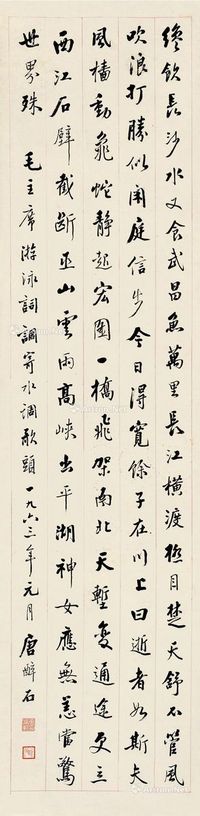 纔飲長沙水又食武昌魚萬里長江橫渡極目楚天舒不管風
吹浪打勝似閑庭信步今日得寬餘子在川上曰逝者如斯夫
風檣動龜蛇靜起宏圖一橋飛架南北天塹變通途更立
西江石壁截斷巫山雲雨高峽出平湖神女應無恙當驚
世界殊 毛主席游泳詞調寄水調歌頭一九六三年元月唐醉石